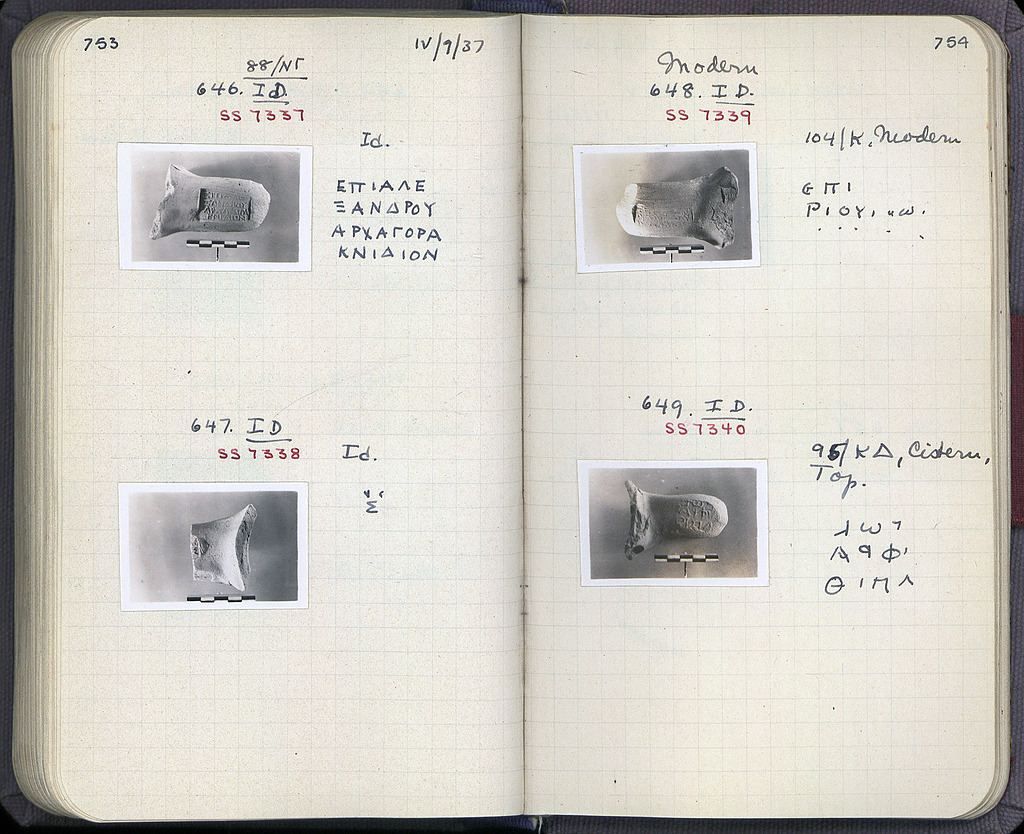 753
IV/9/37
88/ΝΓ
646. Id.
SS 7337
Id.
ΕΠΙΑΛΕ
ΞΑΝΔΡΟΥ
ΑΡΧΑΓΟΡΑ
ΚΝΙΔΙΟΝ
647. ID
SS 7338
Id.
Σ
754
Modern
648. ID.
SS 7339
104/Κ, Modern
ΕΠΙ
ΡΙΟΥ
649. ID.
SS 7340
95/ΚΔ, Cistern,
Top.